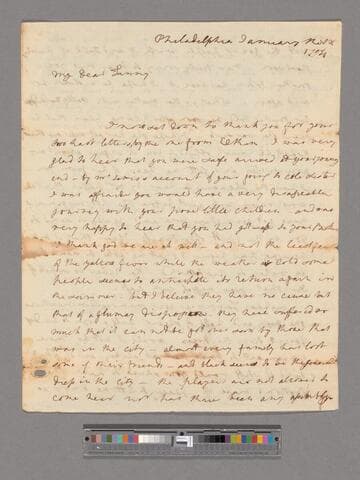 Philadelphia January No 8th
1794
My Dear Fanny
I now set down to thank you for your
two last letters, by the one from I was very
glad to hear that you were safe arrived at your journey
end - by Mr account of your
I was affraide you would have a very disagreable
journey with your poor little children and was
very happy to hear that you had got to your
I thank god we are all well - and not the least
of the yallow fever while the weather is cold some
people seemes to anticipate its return again in
the summer - but I beleive they have no cause but
that of a glumey disposition they have suffered so
much that it can not be got over soon by those that
was in the city - almost every family has lost
some of their friends - and black seems to be the general
dress in the city - the players are not allowed to
come hear nor has there been any assembly -